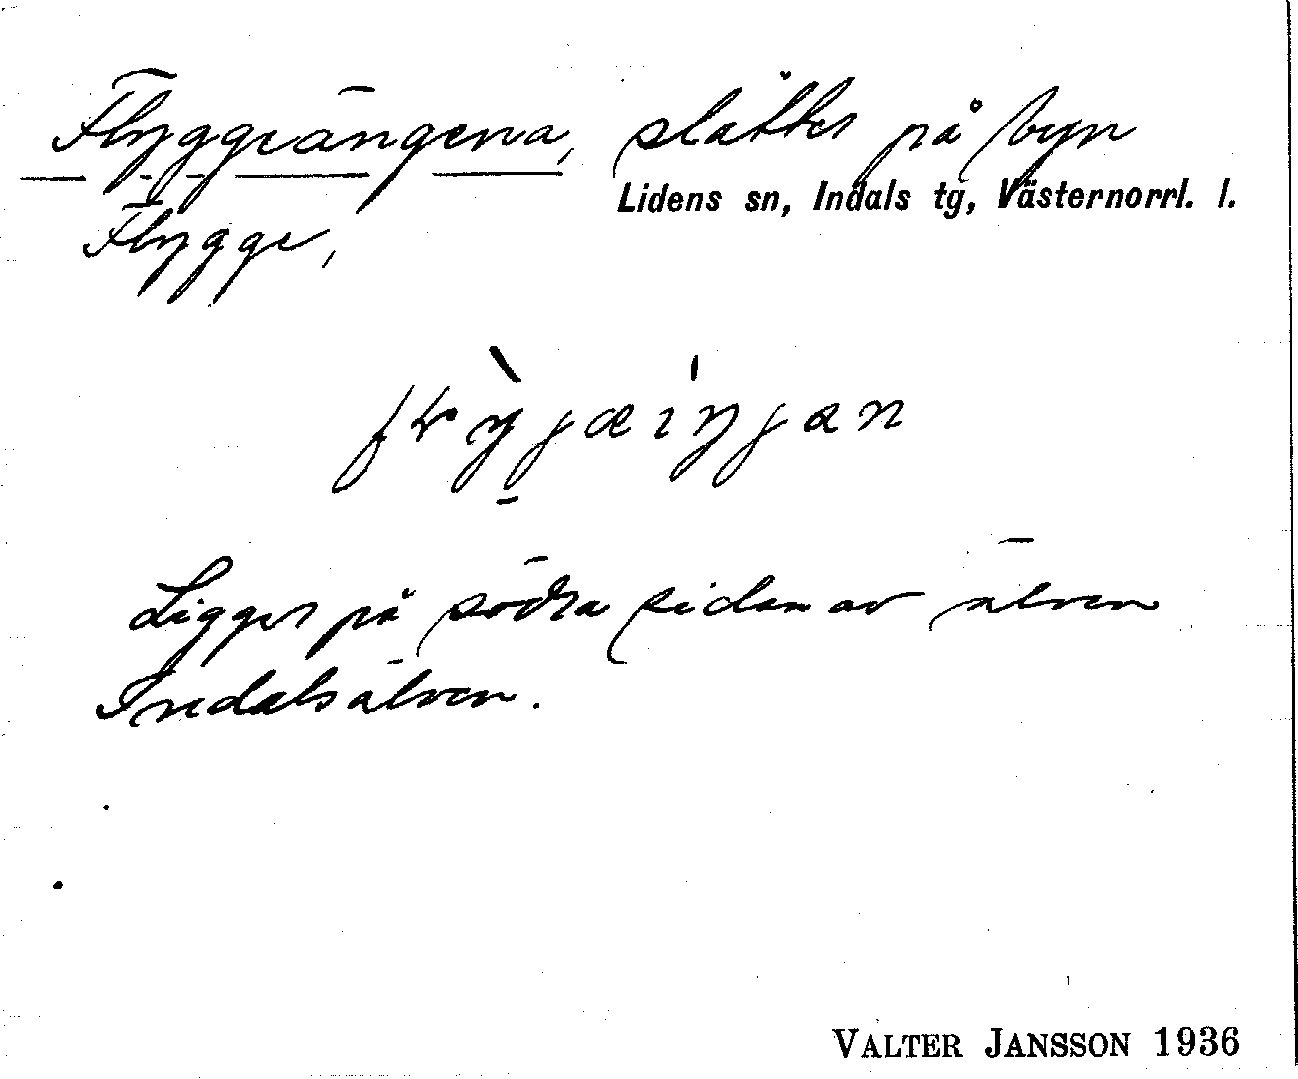 Flyggeängena, slåtter på byn
Lidens sn, Indals tg, Västernorrl. l.
Flygge,
Ligger på södra sidan av älven
Indalsälven.
VALTER JANSSON 1936